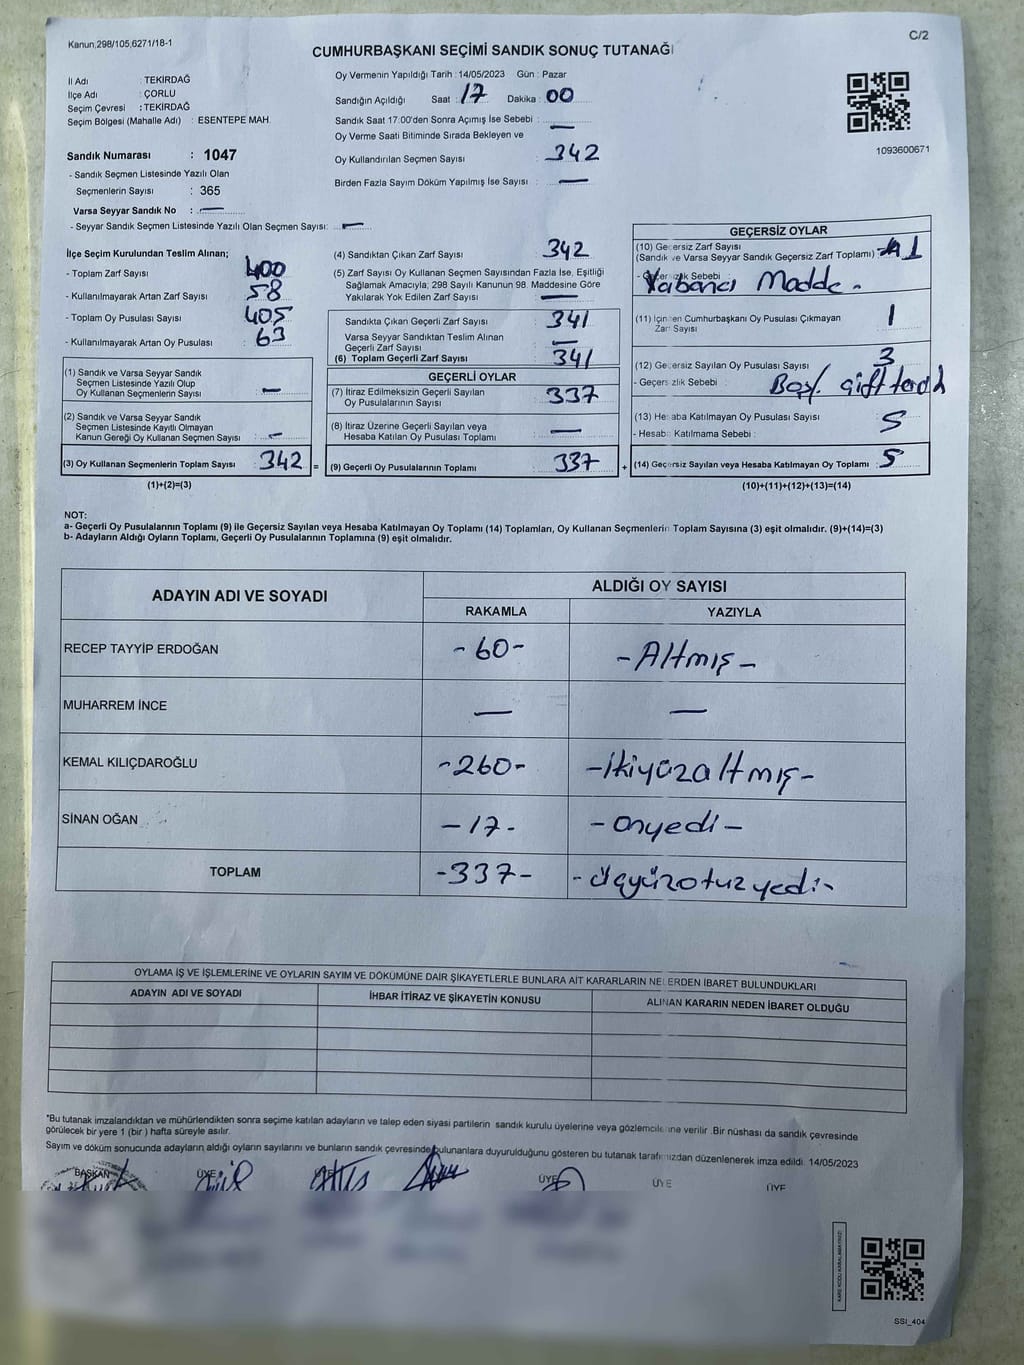 Kanun;298/105,6271/18-1
C/2
CUMHURBAŞKANI SEÇİMİ SANDIK SONUÇ TUTANAĞI
İl Adı : TEKİRDAĞ
İlçe Adı : ÇORLU
Seçim Çevresi : TEKİRDAĞ
Seçim Bölgesi (Mahalle Adı) : ESENTEPE MAH.
Sandık Numarası : 1047
- Sandık Seçmen Listesinde Yazılı Olan
Seçmenlerin Sayısı : 365
Varsa Seyyar Sandık No : —
- Seyyar Sandık Seçmen Listesinde Yazılı Olan Seçmen Sayısı: —
Oy Vermenin Yapıldığı Tarih : 14/05/2023 Gün : Pazar
Sandığın Açıldığı Saat : 17 Dakika : 00
Sandık Saat 17:00'den Sonra Açımış İse Sebebi : —
Oy Verme Saati Bitiminde Sırada Bekleyen ve
Oy Kullandırılan Seçmen Sayısı : 342
Birden Fazla Sayım Döküm Yapılmış İse Sayısı : —
1093600671
İlçe Seçim Kurulundan Teslim Alınan;
- Toplam Zarf Sayısı : 400
- Kullanılmayarak Artan Zarf Sayısı : 58
- Toplam Oy Pusulası Sayısı : 405
- Kullanılmayarak Artan Oy Pusulası : 63
(1) Sandık ve Varsa Seyyar Sandık
Seçmen Listesinde Yazılı Olup
Oy Kullanan Seçmenlerin Sayısı : —
(2) Sandık ve Varsa Seyyar Sandık
Seçmen Listesinde Kayıtlı Olmayan
Kanun Gereği Oy Kullanan Seçmen Sayısı : —
(3) Oy Kullanan Seçmenlerin Toplam Sayısı : 342 =
(1)+(2)=(3)
(4) Sandıktan Çıkan Zarf Sayısı : 342
(5) Zarf Sayısı Oy Kullanan Seçmen Sayısından Fazla İse, Eşitliği
Sağlamak Amacıyla, 298 Sayılı Kanunun 98. Maddesine Göre
Yakılarak Yok Edilen Zarf Sayısı : —
Sandıkta Çıkan Geçerli Zarf Sayısı : 341
Varsa Seyyar Sandıktan Teslim Alınan
Geçerli Zarf Sayısı : —
(6) Toplam Geçerli Zarf Sayısı : 341
GEÇERLİ OYLAR
(7) İtiraz Edilmeksizin Geçerli Sayılan
Oy Pusulalarının Sayısı : 337
(8) İtiraz Üzerine Geçerli Sayılan veya
Hesaba Katılan Oy Pusulası Toplamı : —
(9) Geçerli Oy Pusulalarının Toplamı : 337 +
GEÇERSİZ OYLAR
(10) Geçersiz Zarf Sayısı
(Sandık ve Varsa Seyyar Sandık Geçersiz Zarf Toplamı) : 1
- Geçersizlik Sebebi : Yabancı Madde -
(11) İçinden Cumhurbaşkanı Oy Pusulası Çıkmayan
Zarf Sayısı : 1
(12) Geçersiz Sayılan Oy Pusulası Sayısı : 3
- Geçersizlik Sebebi : Boş/ çift tercih
(13) Hesaba Katılmayan Oy Pusulası Sayısı : 5
- Hesaba Katılmama Sebebi :
(14) Geçersiz Sayılan veya Hesaba Katılmayan Oy Toplamı : 5
(10)+(11)+(12)+(13)=(14)
NOT:
a- Geçerli Oy Pusulalarının Toplamı (9) ile Geçersiz Sayılan veya Hesaba Katılmayan Oy Toplamı (14) Toplamları, Oy Kullanan Seçmenlerin Toplam Sayısına (3) eşit olmalıdır. (9)+(14)=(3)
b- Adayların Aldığı Oyların Toplamı, Geçerli Oy Pusulalarının Toplamına (9) eşit olmalıdır.
ADAYIN ADI VE SOYADI ALDIĞI OY SAYISI
RAKAMLA YAZIYLA
RECEP TAYYİP ERDOĞAN -60- -Altmış-
MUHARREM İNCE — —
KEMAL KILIÇDAROĞLU -260- -İkiyüzaltmış-
SİNAN OĞAN -17- -Onyedi-
TOPLAM -337- -üçyüzotuzyedi-
OYLAMA İŞ VE İŞLEMLERİNE VE OYLARIN SAYIM VE DÖKÜMÜNE DAİR ŞİKAYETLERLE BUNLARA AİT KARARLARIN NELERDEN İBARET BULUNDUKLARI
ADAYIN ADI VE SOYADI İHBAR İTİRAZ VE ŞİKAYETİN KONUSU ALINAN KARARIN NEDEN İBARET OLDUĞU
"Bu tutanak imzalandıktan ve mühürlendikten sonra seçime katılan adayların ve talep eden siyasi partilerin sandık kurulu üyelerine veya gözlemcilerine verilir .Bir nüshası da sandık çevresinde
görülecek bir yere 1 (bir ) hafta süreyle asılır.
Sayım ve döküm sonucunda adayların aldığı oyların sayılarını ve bunların sandık çevresinde bulunanlara duyurulduğunu gösteren bu tutanak tarafımızdan düzenlenerek imza edildi. 14/05/2023
BAŞKAN ÜYE ÜYE ÜYE ÜYE ÜYE
KARE KODU KARALAMAYINIZ!
SSI_404